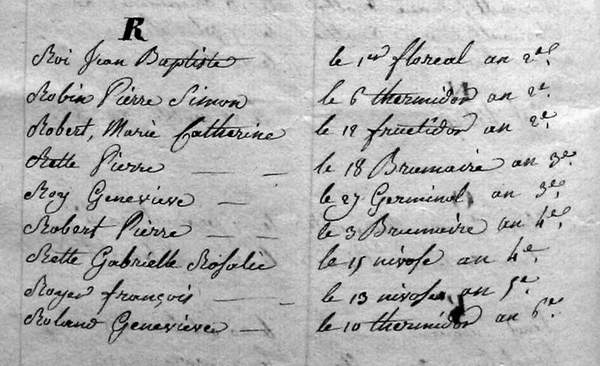 R
Roi Jean Baptiste le 1er floreal an 2e.
Robin Pierre Simon le 6 thermidor an 2e.
Robert, Marie Catherine le 12 fructidor an 2e.
Rette Pierre — — le 18 Brumaire an 3e.
Roy Genevieve — le 27 Germinal an 3e.
Robert Pierre — — le 3 Brumaire an 4e.
Rette Gabrielle Rosalie le 15 nivose an 4e.
Royer françois — — le 13 nivose an 5e.
Roland Genevieve — le 10 thermidor an 6e.